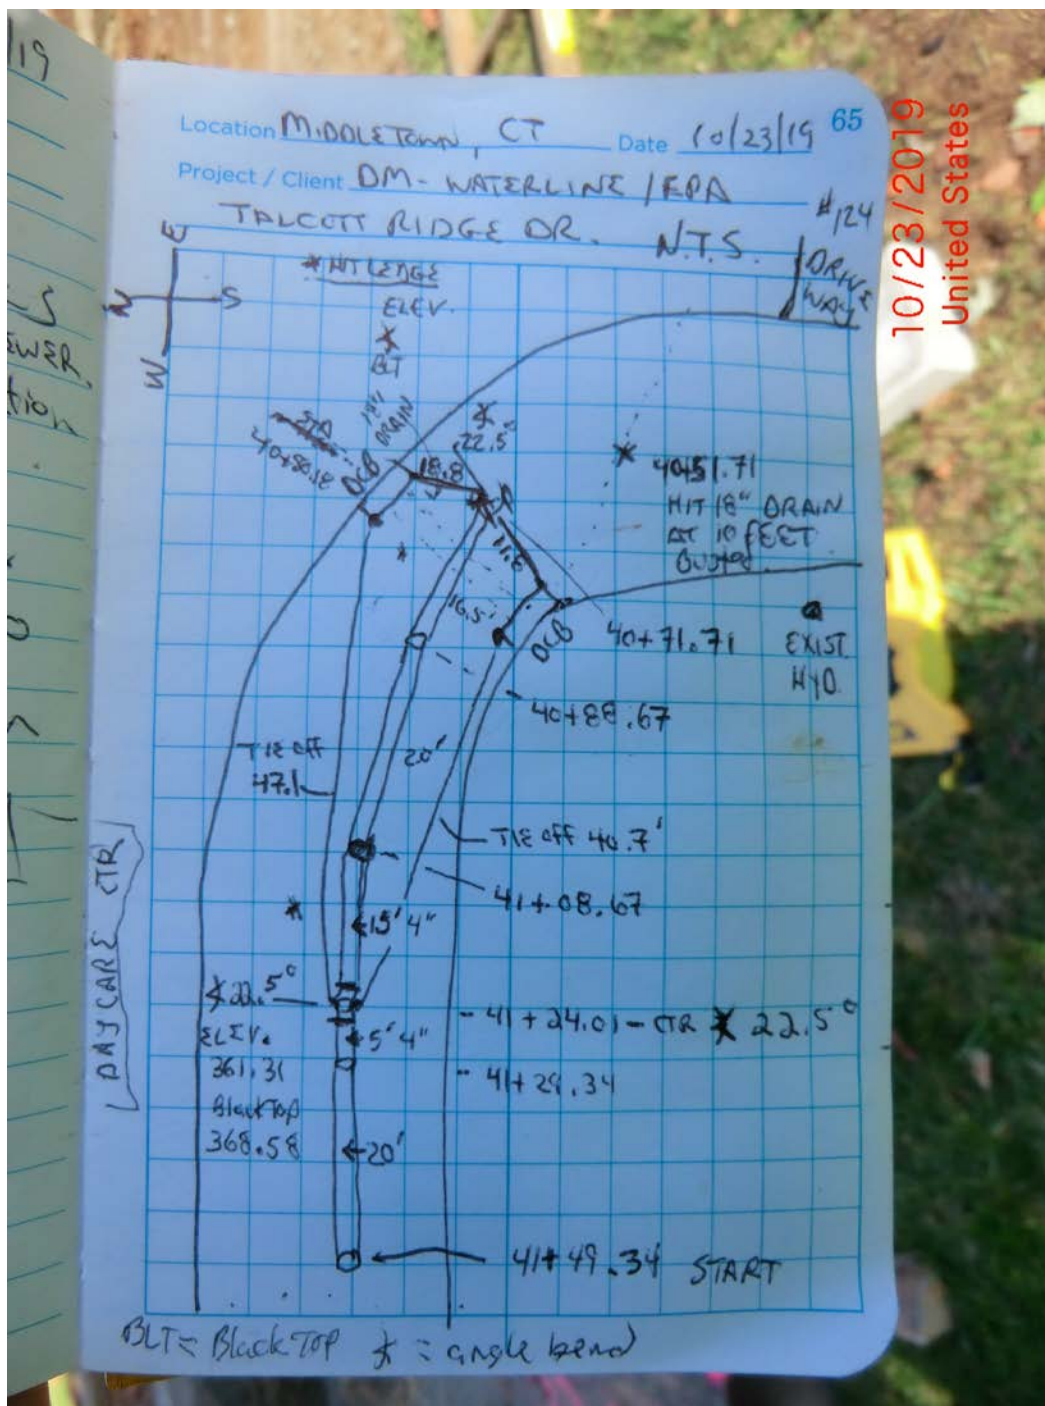 /19
EWER.
tion
Location MIDDLETOWN, CT Date 10/23/19 65
Project / Client DM-WATERLINE / EPA
TALCOTT RIDGE DR. N.T.S. #124
DRIVE
WAY
E
N S
W
* HIT LEDGE
ELEV.
BLT
18"
DRAIN
40+80.18
DCB
22.5°
18.8
40+51.71
HIT 18" DRAIN
AT 10 FEET
11.8
16.5'
DCB
40+71.71
EXIST.
HYD.
40+88.67
TIE OFF
47.1
20'
TIE OFF 40.7'
41+08.67
15' 4"
DAYCARE CTR
22.5°
ELEV.
361.31
BlackTop
368.58
41+24.01-CTR 22.5°
5' 4"
41+29.34
20'
41+49.34 START
BLT= BlackTop * = angle bend
10/23/2019
United States